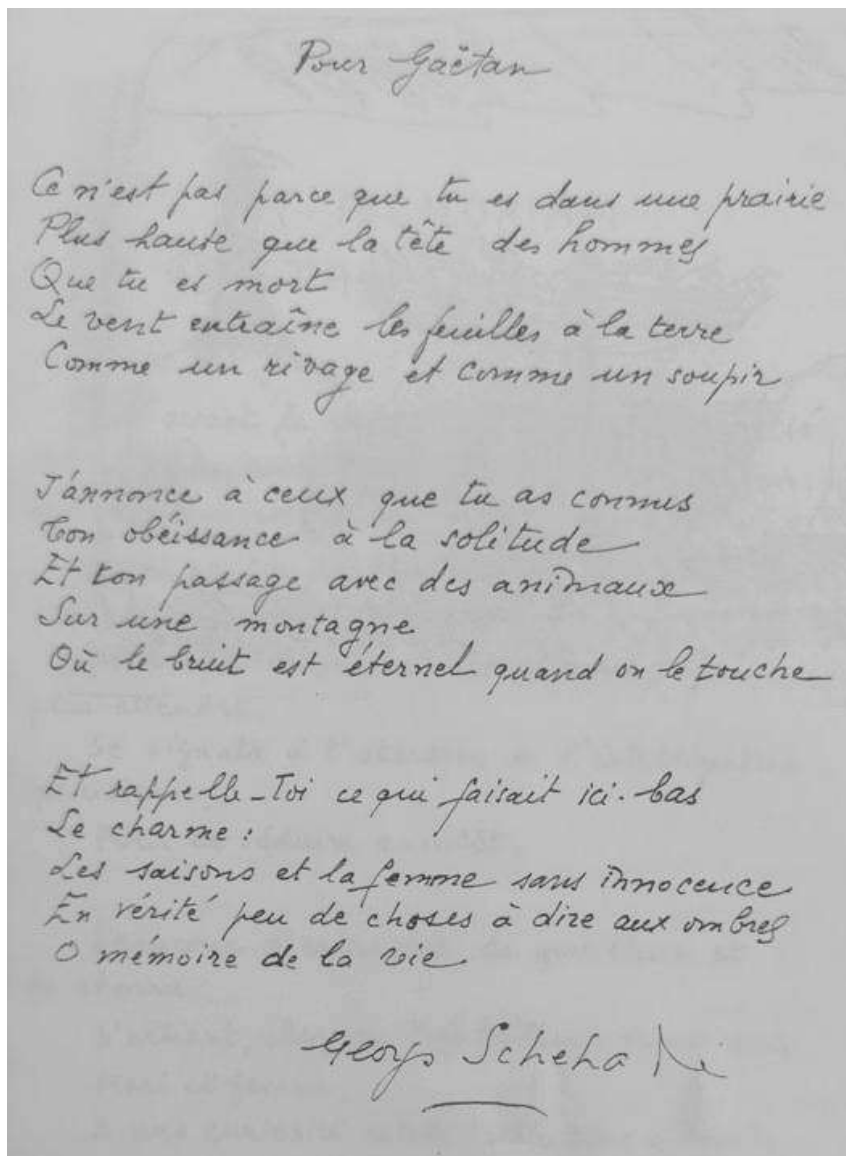 Pour Gaëtan
Ce n'est pas parce que tu es dans une prairie
Plus haute que la tête des hommes
Que tu es mort
Le vent entraîne les feuilles à la terre
Comme un rivage et comme un soupir
J'annonce à ceux que tu as connus
Ton obéissance à la solitude
Et ton passage avec des animaux
Sur une montagne
Où le bruit est éternel quand on le touche
Et rappelle-Toi ce qui faisait ici-bas
Le charme :
Les saisons et la femme sans innocence
En vérité peu de choses à dire aux ombres
O mémoire de la vie
Georges Schehadé